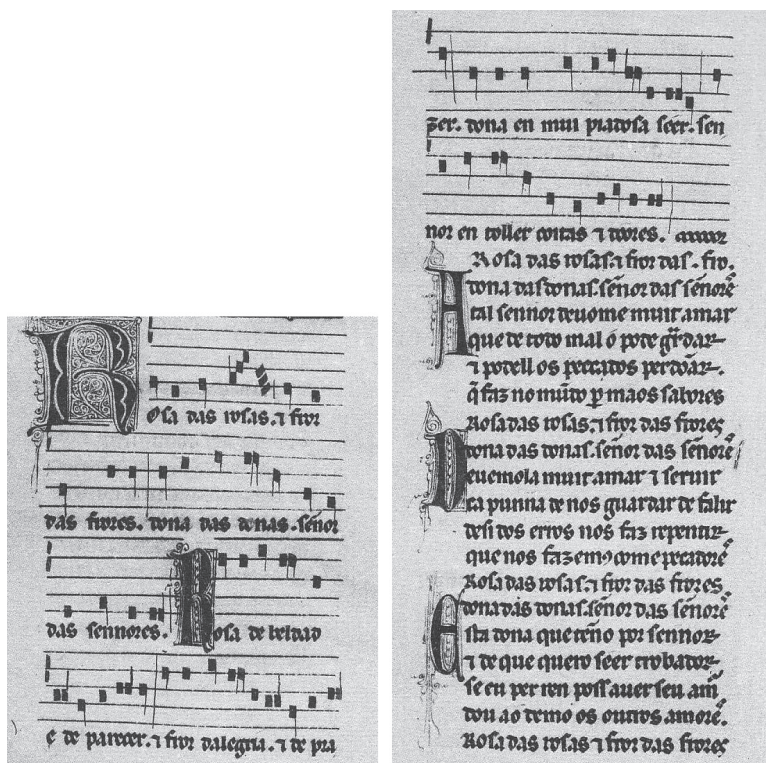 Rosa das rosas. ⁊ fror
das frores. dona das donas. señor
das sennores. Rosa de beldad
e de parecer. ⁊ fror dalegria. ⁊ de pra
zer. dona en mui piadosa seer. sen
nor en toller coitas ⁊ doores.
Rosa das rosas. ⁊ fror das. fro.
Atal sennor deuome muit amar
que de todo mal o pode gũardar
⁊ potell os peccados perdõar.
q̃ faz no mũdo ꝑ maos sabores
Rosa das rosas. ⁊ fror das frores
dona das donas. señor das señore
Deuemola muit amar ⁊ seruir
ca punna de nos guardar de falir
desi dos erros nos faz repentir
que nos fazemꝯ come pecadore
Rosa das rosas. ⁊ fror das frores
dona das donas. señor das señore
Esta dona que teño por sennor
⁊ de que quero seer trobador
se eu per ren poss auer seu am̃
dou ao demo os outros amore.
Rosa das rosas ⁊ fror das frores